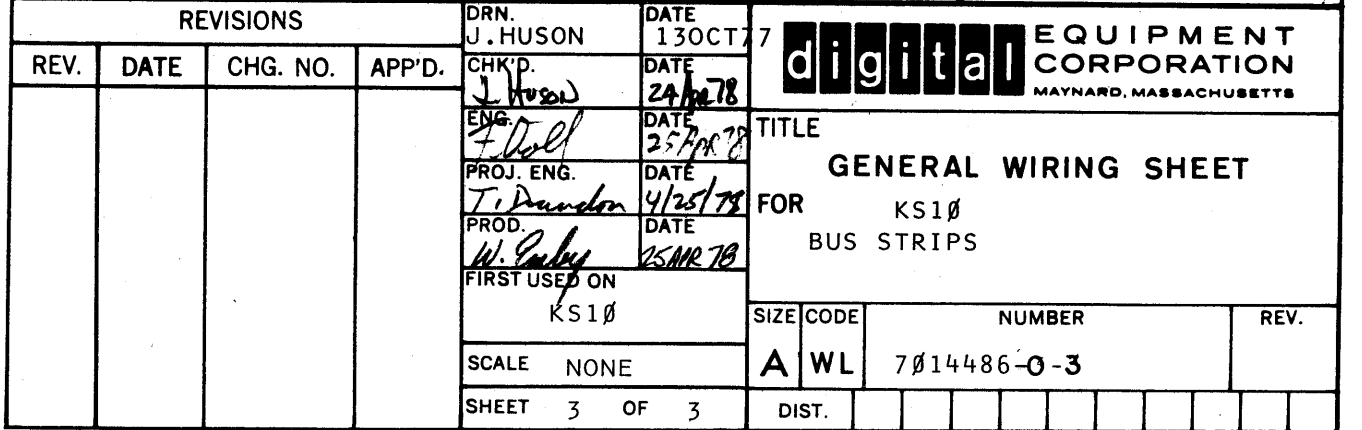 REVISIONS
REV. DATE CHG. NO. APP'D.
DRN. DATE
J.HUSON 13OCT77
CHK'D. DATE
J. HUSON 24 APR 78
ENG. DATE
25 APR 78
PROJ. ENG. DATE
T. 4/25/78
PROD. DATE
W. 25 APR 78
FIRST USED ON
KS1Ø
SCALE NONE
SHEET 3 OF 3
digital EQUIPMENT
CORPORATION
MAYNARD, MASSACHUSETTS
TITLE
GENERAL WIRING SHEET
FOR KS1Ø
BUS STRIPS
SIZE CODE NUMBER REV.
A WL 7Ø14486-0-3
DIST.